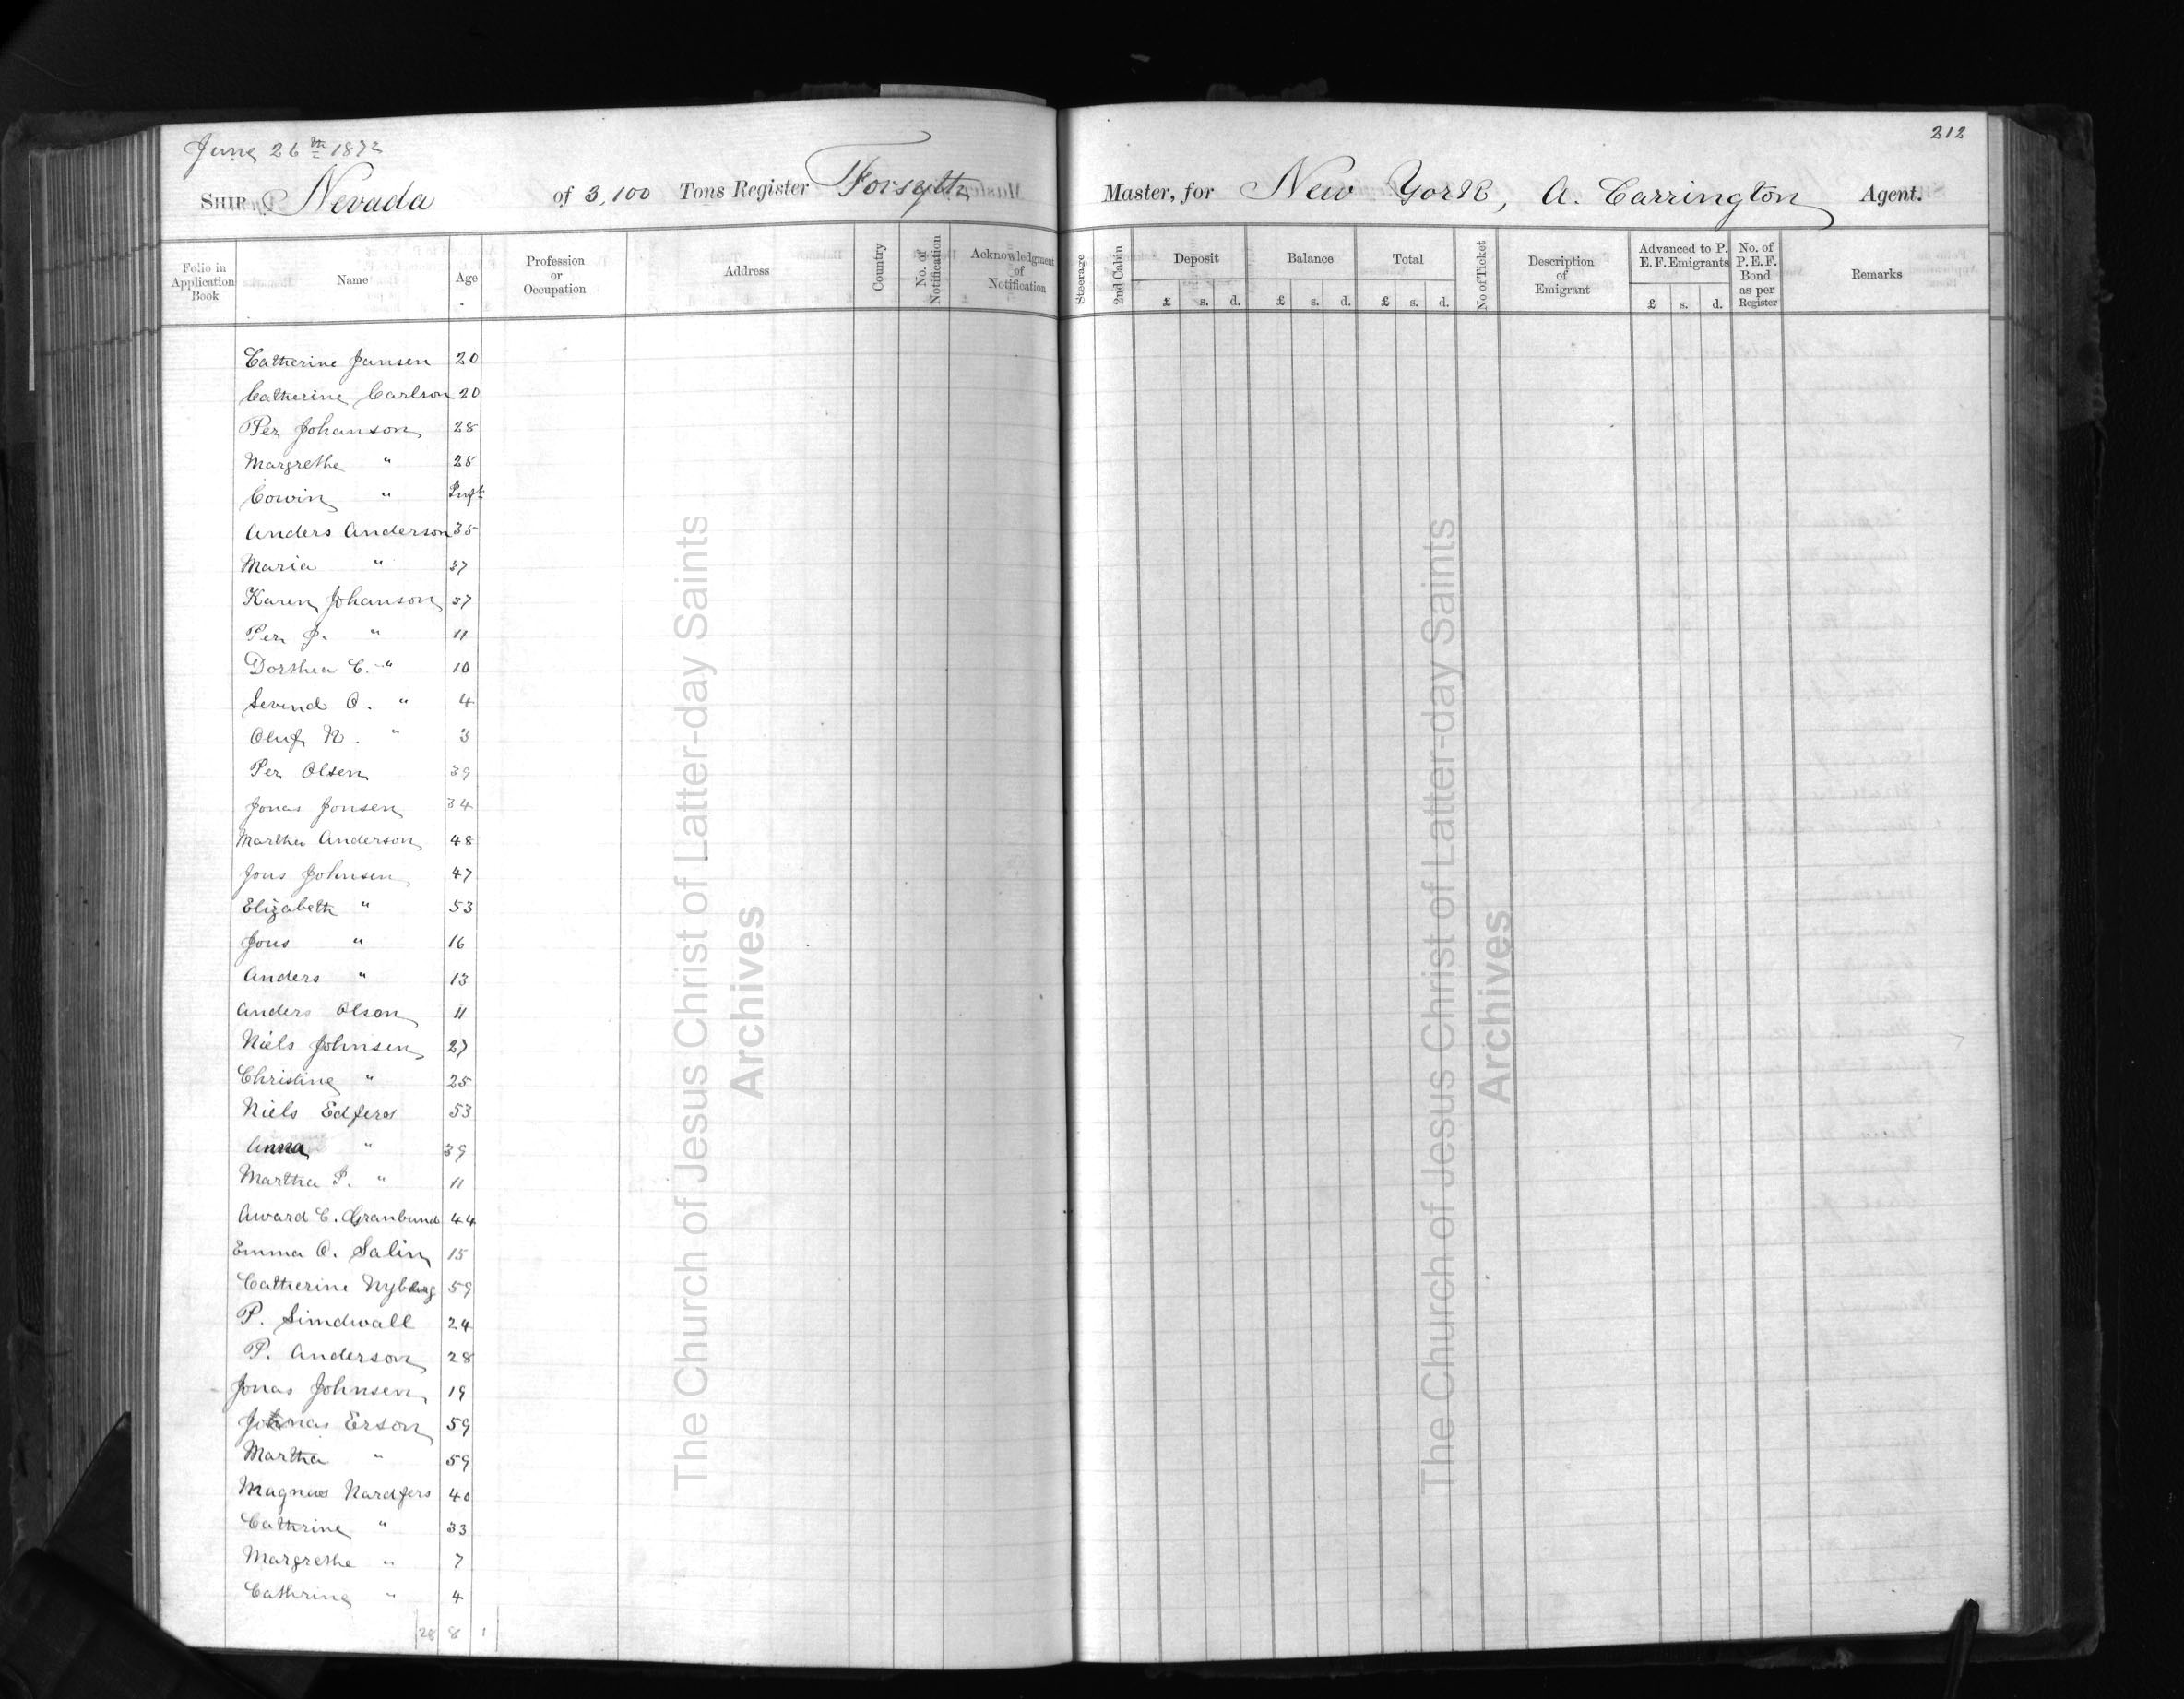 June 26th 1872
212
SHIP Nevada of 3,100 Tons Register Forsyth Master, for New York, A. Carrington Agent.
Folio in Application Book Name Age Profession or Occupation Address Country No. of Notification Acknowledgment of Notification Steerage 2nd Cabin Deposit Balance Total No of Ticket Description of Emigrant Advanced to P. E. F. Emigrants No. of P. E. F. Bond as per Register Remarks
£ s. d. £ s. d. £ s. d. £ s. d.
Catherine Jansen 20
Catherine Carlson 20
Per Johanson 28
Margrethe " 25
Cowin " Inft
Anders Anderson 35
Maria " 37
Karen Johanson 37
Per J. " 11
Dorthea C. " 10
Sevend O. " 4
Oluf N. " 3
Per Olsen 39
Jonas Jonsen 34
Martha Anderson 48
Jons Johnsen 47
Elizabeth " 53
Jons " 16
Anders " 13
Anders Olson 11
Niels Johnsen 27
Christine " 25
Niels Edfers 53
Anna " 39
Martha P. " 11
Award C. Granbund 44
Emma O. Salin 15
Catherine Nyberg 59
P. Simdwall 24
P. Anderson 28
Jonas Johnsen 19
Erson 59
Martha " 59
Magnus Nardfers 40
Cathrine " 33
Margrethe " 7
Cathrine " 4
28 8 1
The Church of Jesus Christ of Latter-day Saints
Archives
The Church of Jesus Christ of Latter-day Saints
Archives